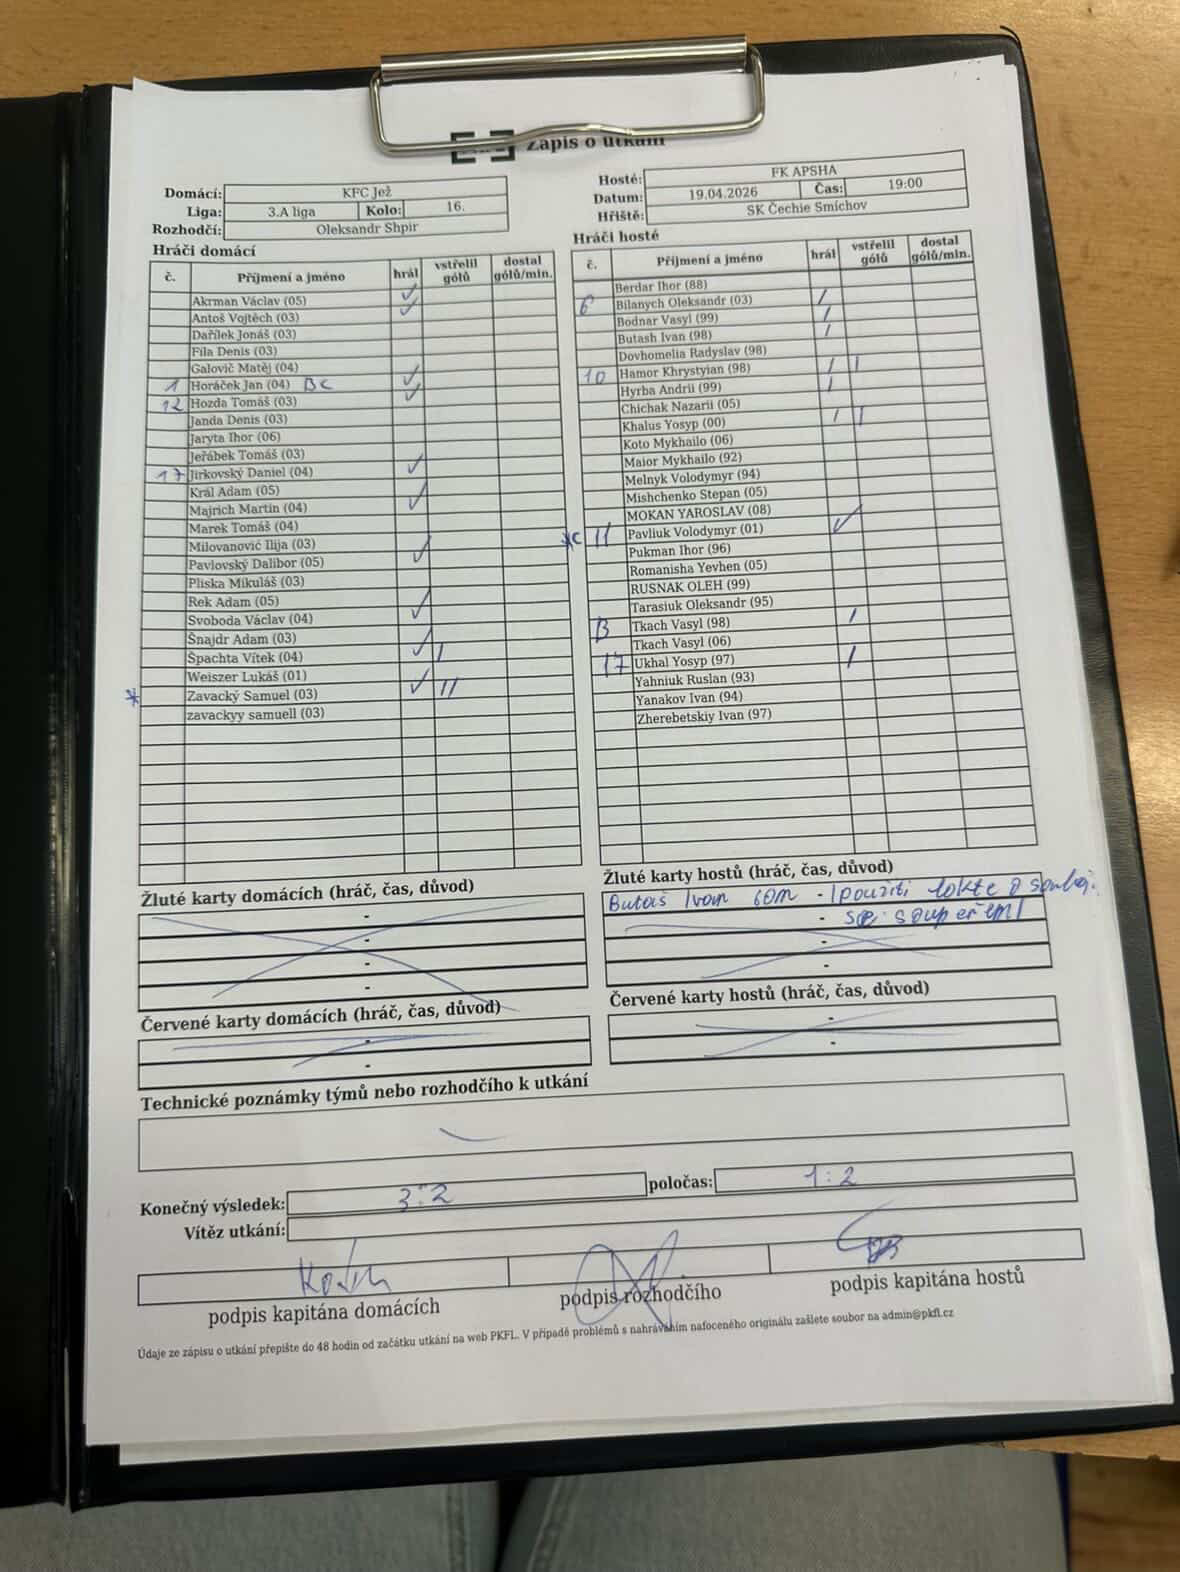 Zápis o utkání
Domácí: KFC Jež
Liga: 3.A liga Kolo: 16.
Rozhodčí: Oleksandr Shpir
Hosté: FK APSHA
Datum: 19.04.2026 Čas: 19:00
Hřiště: SK Čechie Smíchov
Hráči domácí
č. Příjmení a jméno hrál vstřelil gólů dostal gólů/min.
Akrman Václav (05) ✓
Antoš Vojtěch (03) ✓
Dařílek Jonáš (03)
Fila Denis (03)
Galovič Matěj (04)
1 Horáček Jan (04) BC ✓
12 Hozda Tomáš (03) ✓
Janda Denis (03)
Jaryta Ihor (06)
Jeřábek Tomáš (03)
17 Jirkovský Daniel (04) ✓
Král Adam (05)
Majrich Martin (04) ✓
Marek Tomáš (04)
Milovanović Ilija (03)
Pavlovský Dalibor (05) ✓
Pliska Mikuláš (03)
Rek Adam (05)
Svoboda Václav (04) ✓
Šnajdr Adam (03)
Špachta Vítek (04) ✓ I
Weiszer Lukáš (01)
* Zavacký Samuel (03) ✓ II
zavackyy samuell (03)
Hráči hosté
č. Příjmení a jméno hrál vstřelil gólů dostal gólů/min.
Berdar Ihor (88)
6 Bilanych Oleksandr (03) /
Bodnar Vasyl (99) /
Butash Ivan (98) /
Dovhomelia Radyslav (98)
10 Hamor Khrystyian (98) / I
Hyrba Andrii (99) /
Chichak Nazarii (05)
Khalus Yosyp (00) / I
Koto Mykhailo (06)
Maior Mykhailo (92)
Melnyk Volodymyr (94)
Mishchenko Stepan (05)
MOKAN YAROSLAV (08)
*C 11 Pavliuk Volodymyr (01) ✓
Pukman Ihor (96)
Romanisha Yevhen (05)
RUSNAK OLEH (99)
Tarasiuk Oleksandr (95)
B Tkach Vasyl (98) /
Tkach Vasyl (06)
17 Ukhal Yosyp (97) /
Yahniuk Ruslan (93)
Yanakov Ivan (94)
Zherebetskiy Ivan (97)
Žluté karty domácích (hráč, čas, důvod)
-
-
-
-
Žluté karty hostů (hráč, čas, důvod)
Butaš Ivan 60m - použití lokte o souboj.
- se soupeřemi
-
-
Červené karty domácích (hráč, čas, důvod)
-
-
Červené karty hostů (hráč, čas, důvod)
-
-
Technické poznámky týmů nebo rozhodčího k utkání
Konečný výsledek: 3:2 poločas: 1:2
Vítěz utkání:
podpis kapitána domácích podpis rozhodčího podpis kapitána hostů
Údaje ze zápisu o utkání přepište do 48 hodin od začátku utkání na web PKFL. V případě problémů s nahráváním nafoceného originálu zašlete soubor na admin@pkfl.cz